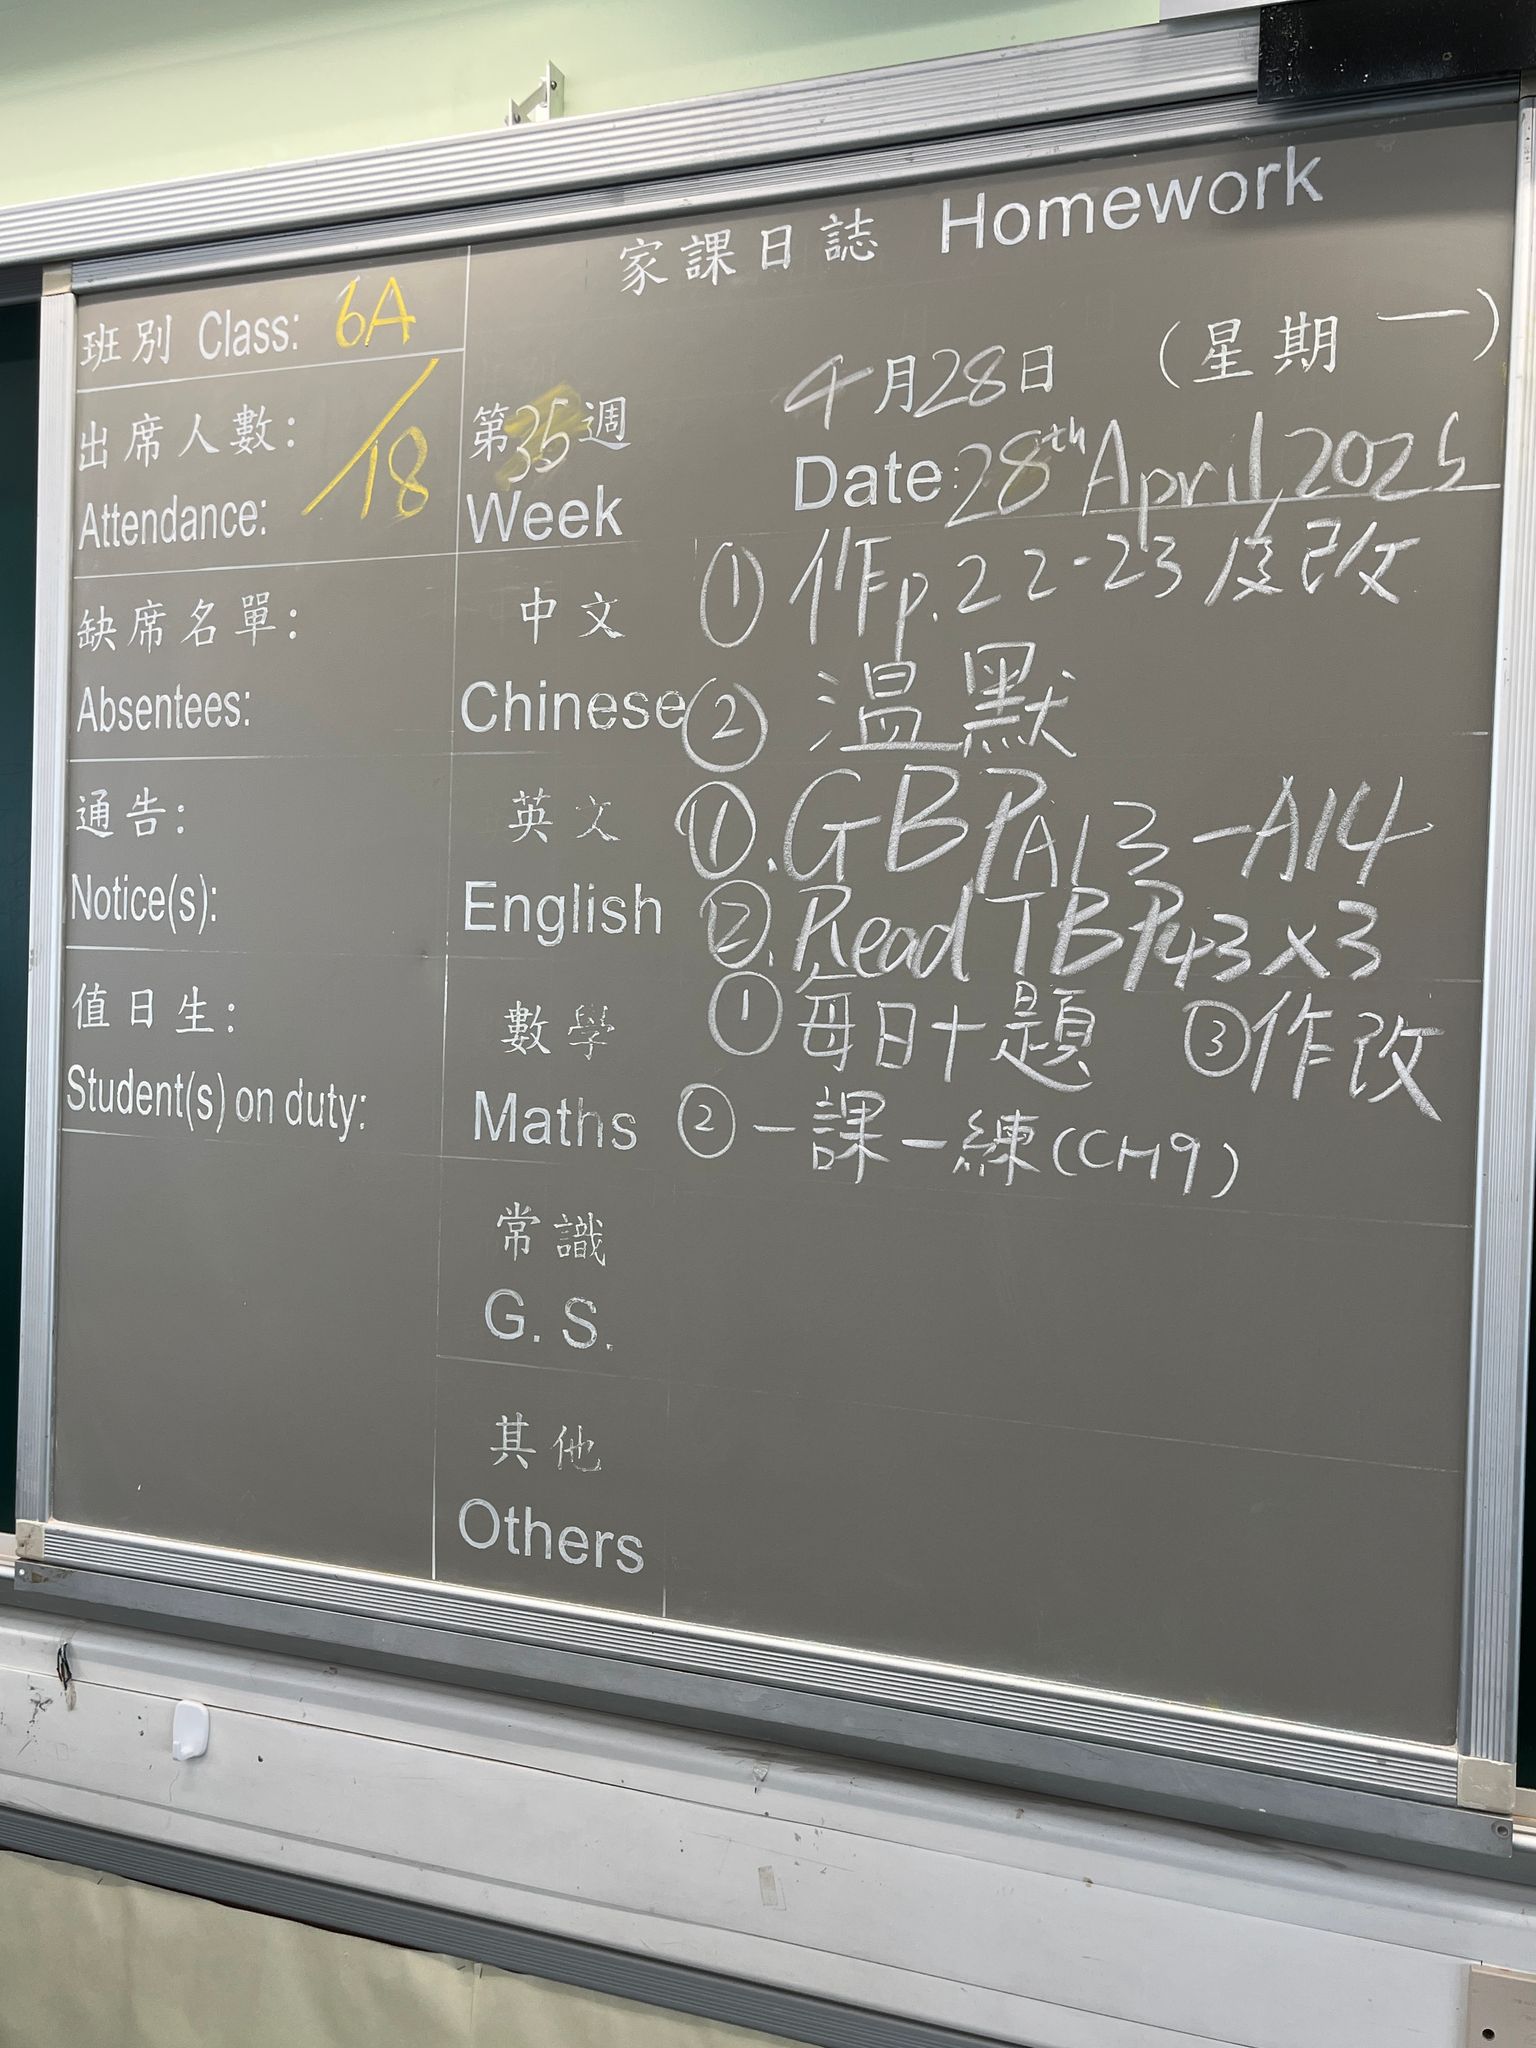 家課日誌 Homework
班別 Class: 6A
出席人數:
Attendance: /18
缺席名單:
Absentees:
通告:
Notice(s):
值日生:
Student(s) on duty:
第35週
Week
4月28日 (星期一)
Date: 28th April, 2025
中文
Chinese
① 作p.22-23 改
② 温默
英文
English
①. GB PA13-A14
②. Read TB P43x3
數學
Maths
① 每日十題 ③作改
② 一課一練(CH9)
常識
G. S.
其他
Others